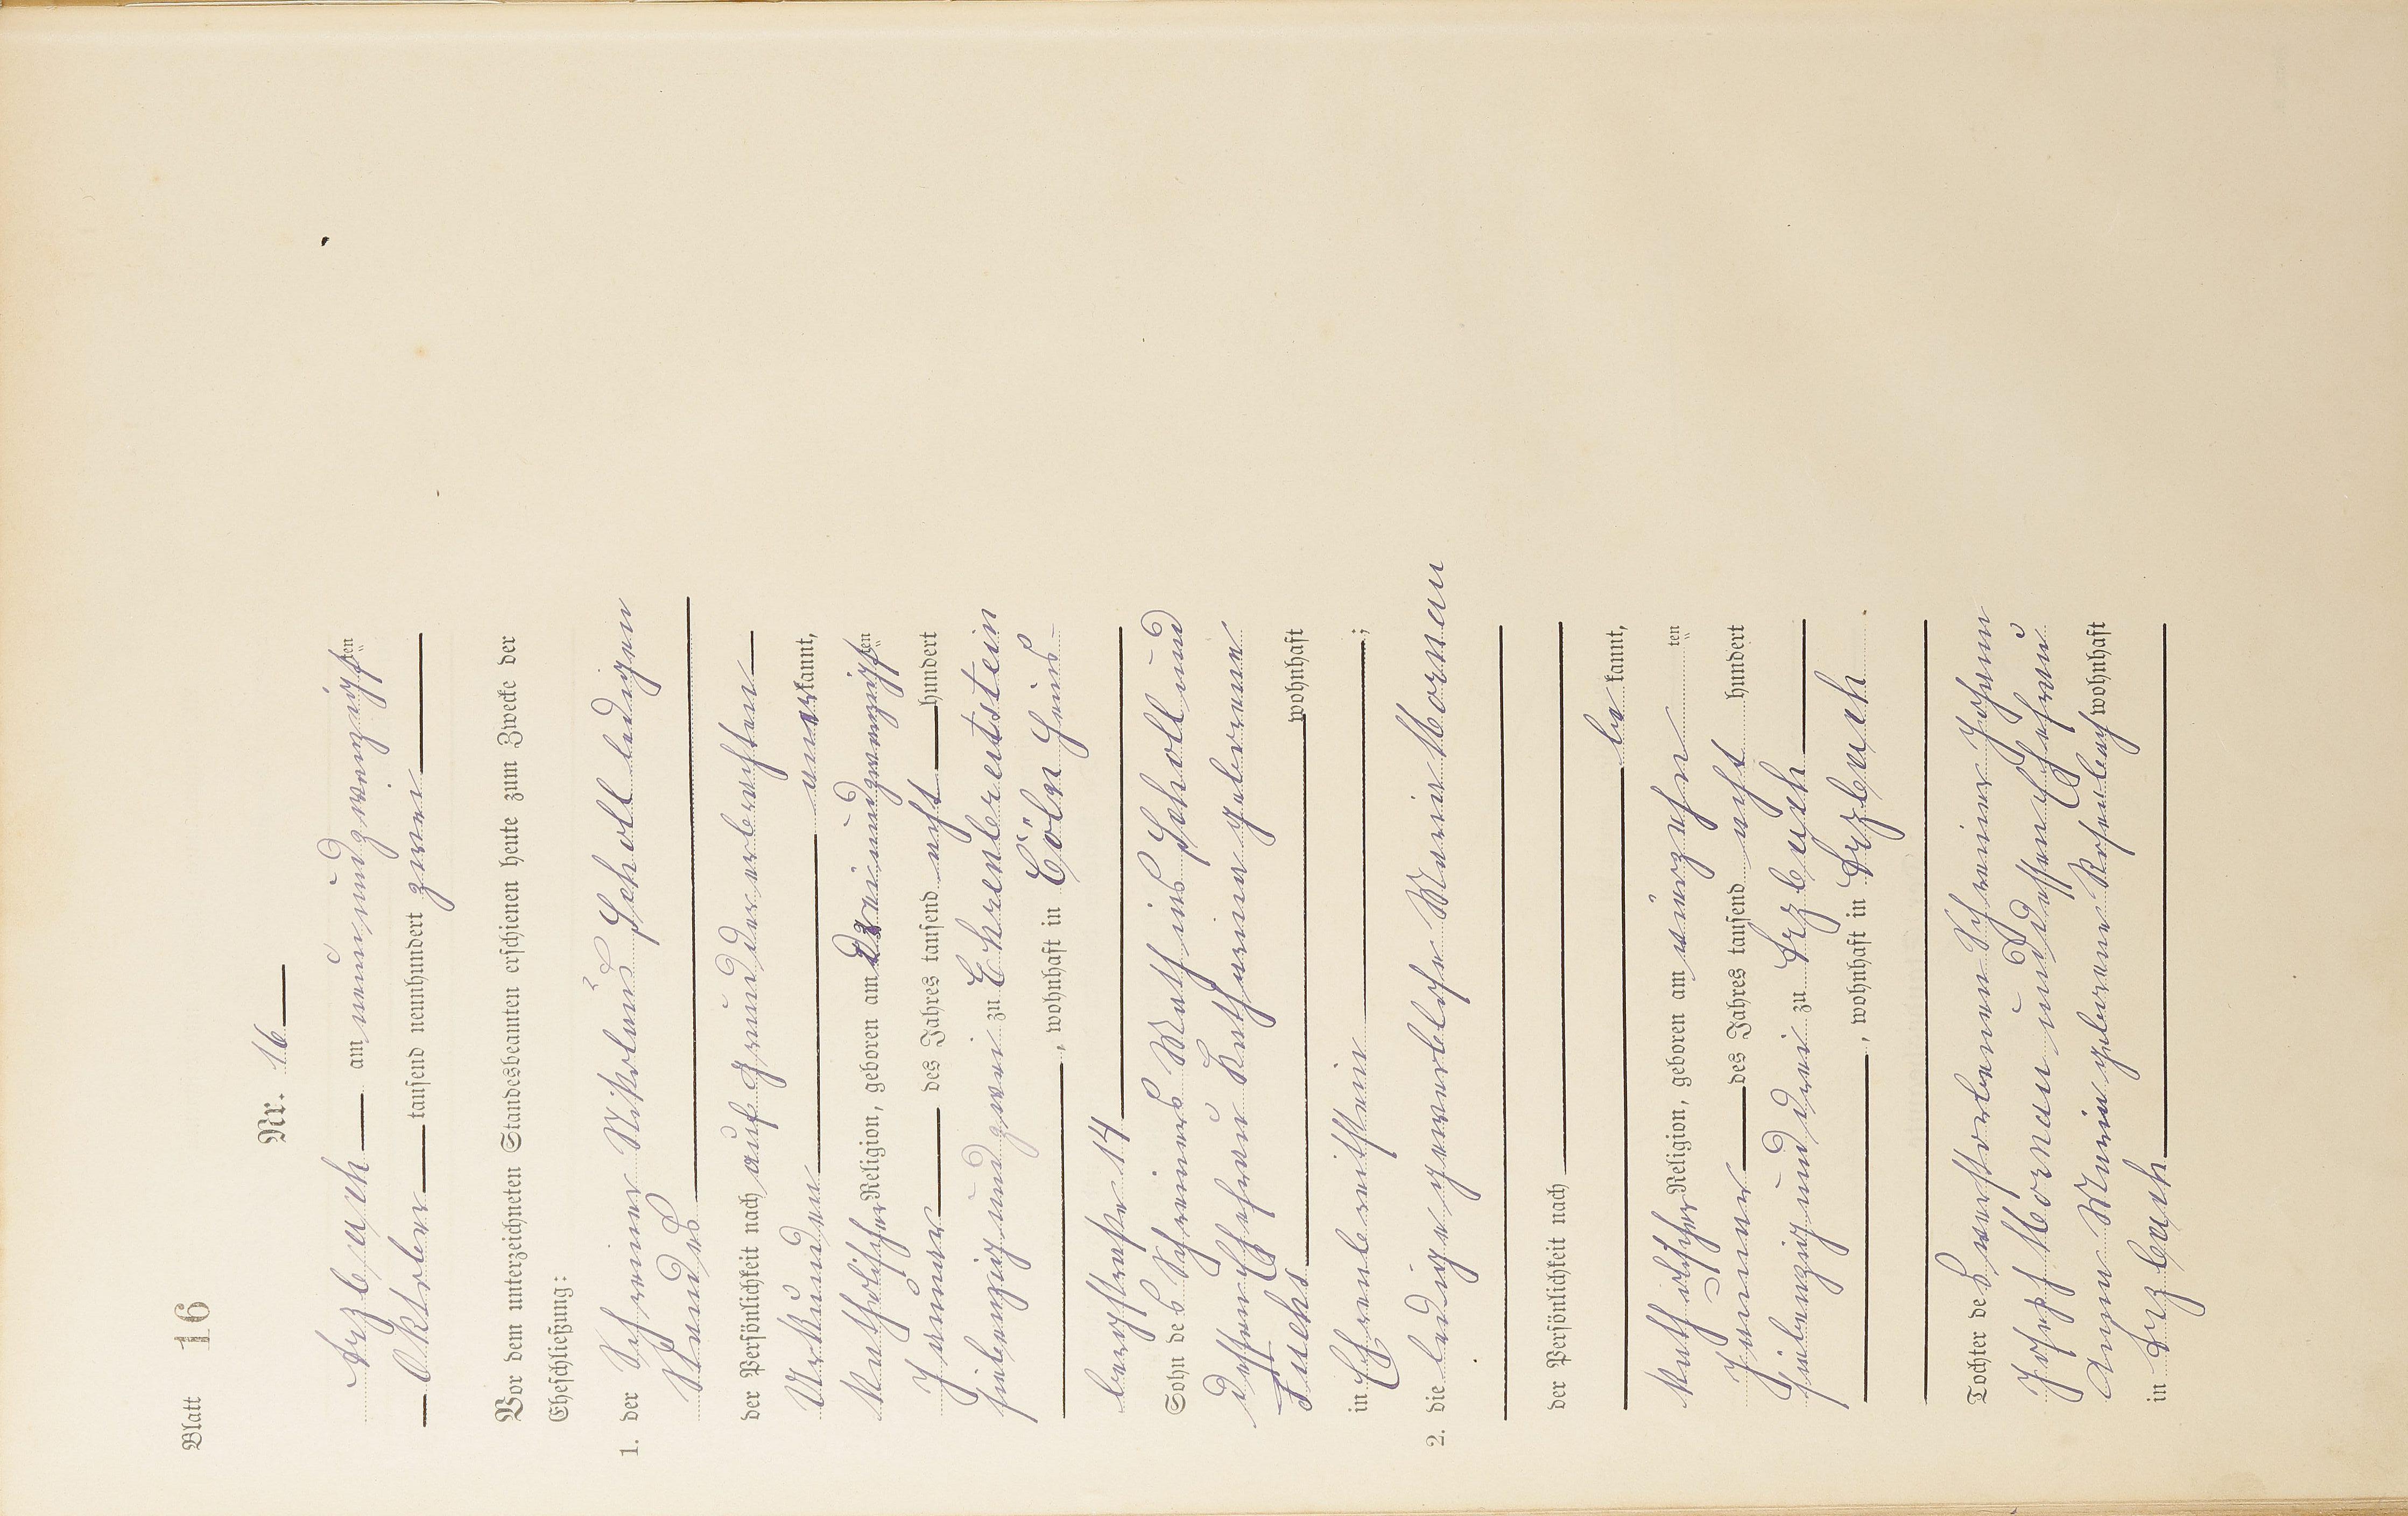 Blatt 16
Nr. 16
Arzbach am neunundzwanzigsten
Oktober tausend neunhundert zwei
Vor dem unterzeichneten Standesbeamten erschienen heute zum Zwecke der
Eheschließung:
1. der Schreiner Nikolaus Scholl ledigen
Standes
der Persönlichkeit nach auf Grund der erbrachten
Urkunden anerkannt,
katholischer Religion, geboren am dreiundzwanzigsten
Januar des Jahres tausend acht hundert
siebenzig und zwei zu Ehrenbreitstein
, wohnhaft in Cöln Heins-
bergstraße 14
Sohn des Schreiners Mathias Scholl und
dessen Ehefrau Katharina geborenen
Fuchs wohnhaft
in Ehrenbreitstein ;
2. die ledige gewerblose Maria Mornau
der Persönlichkeit nach
be kannt,
katholischer Religion, geboren am vierzehn ten
Januar des Jahres tausend acht hundert
siebenzig und drei zu Arzbach
, wohnhaft in Arzbach.
Tochter des verstorbenen Schreiner Johann
Josef Mornau und dessen Ehefrau
Anna Maria geborene wohnhaft
in Arzbach